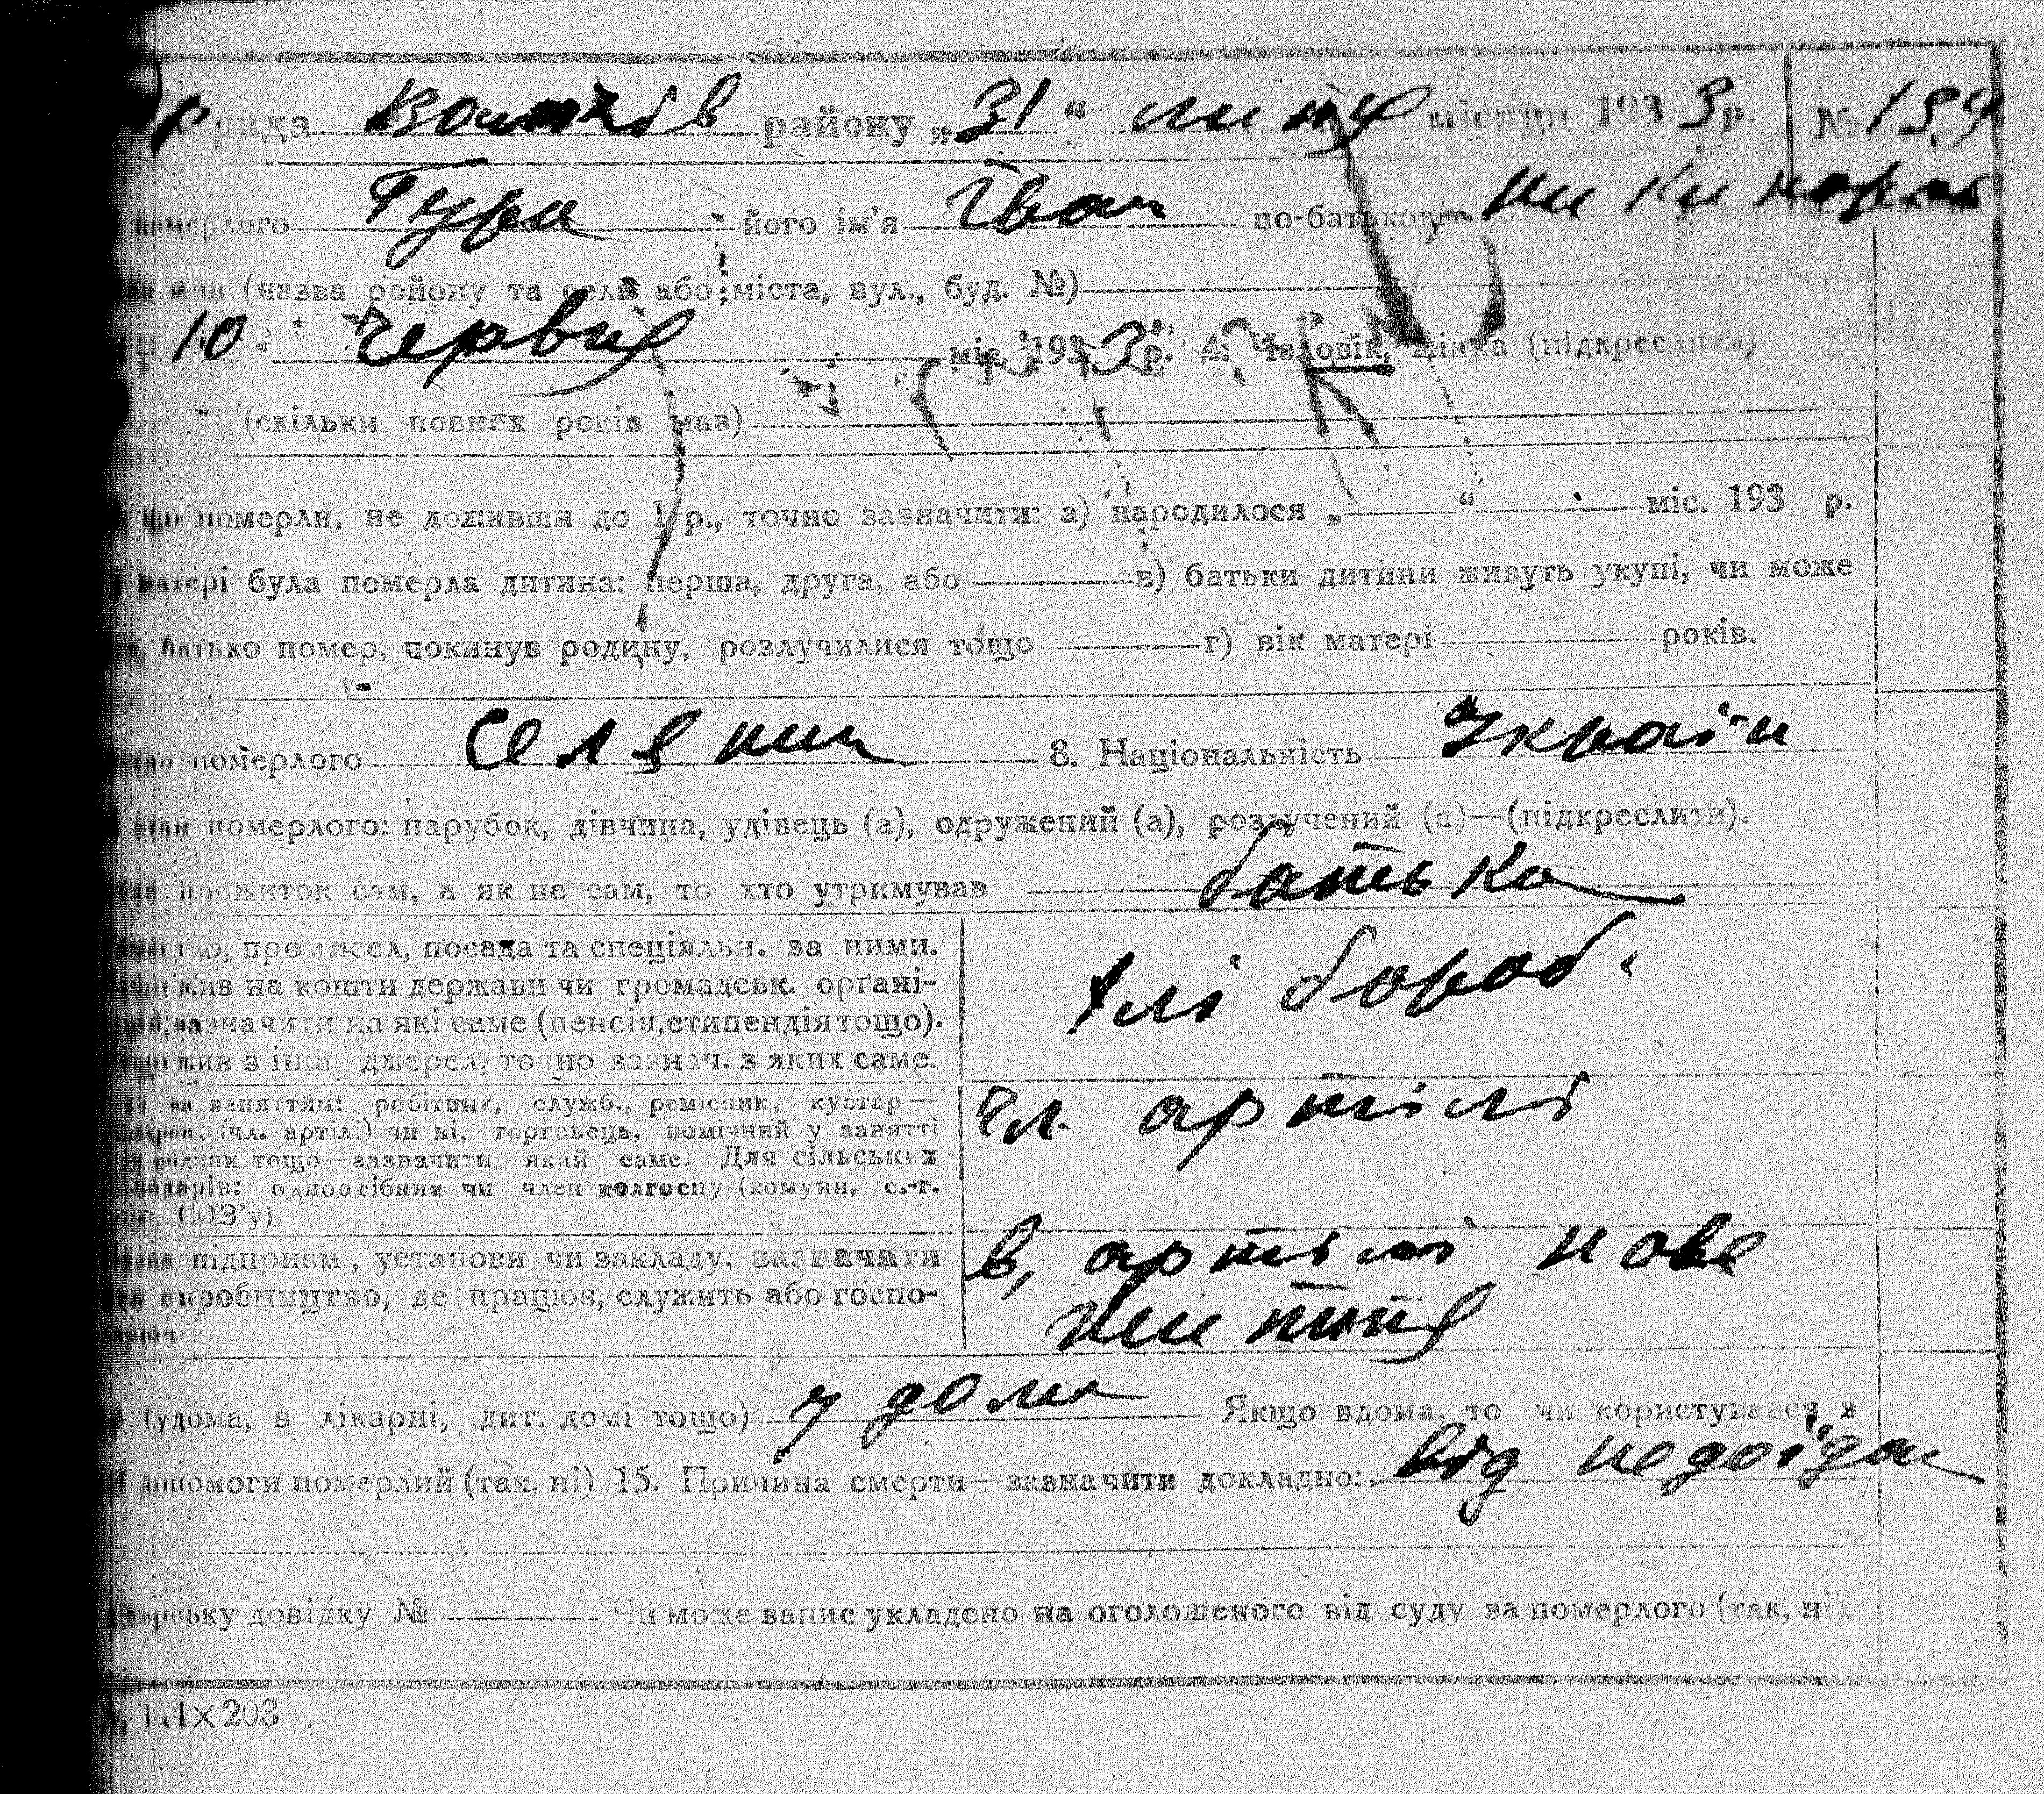 рада Вовчків району „31“ липня місяця 1933 р. № 159
померлого Гура його ім'я Іван по-батькові Никифоров
жив (назва району та села або міста, вул., буд. №)
10 Червня міс. 1933 р. 4. Чоловік, жінка (підкреслити)
(скільки повних років мав)
що померли, не доживши до 1 р., точно зазначити: а) народилося „ “ міс. 193 р.
матері була померла дитина: перша, друга, або в) батьки дитини живуть укупі, чи може
батько помер, покинув родину, розлучилися тощо г) вік матері років.
померлого селянин 8. Національність Україн
стан померлого: парубок, дівчина, удівець (а), одружений (а), розлучений (а)—(підкреслити).
прожиток сам, а як не сам, то хто утримував батька
промисел, посада та спеціяльн. за ними.
жив на кошти держави чи громадськ. орґані-
зазначити на які саме (пенсія, стипендія тощо).
жив з інш. джерел, точно зазнач. з яких саме.
хлібороб.
за заняттям: робітник, служб., ремісник, кустар—
(чл. артілі) чи ні, торговець, помічний у занятті
родини тощо—зазначити який саме. Для сільських
господарів: одноосібник чи член колгоспу (комуни, с.-г.
СОЗ'у)
чл. артілі
підприєм., установи чи закладу, зазначити
виробництво, де працює, служить або госпо-
в, артілі нове
життя
(удома, в лікарні, дит. домі тощо) у дома Якщо вдома, то чи користувався з
допомоги померлий (так, ні) 15. Причина смерти—зазначити докладно: від недоїдан
лікарську довідку № Чи може запис укладено на оголошеного від суду за померлого (так, ні).
203